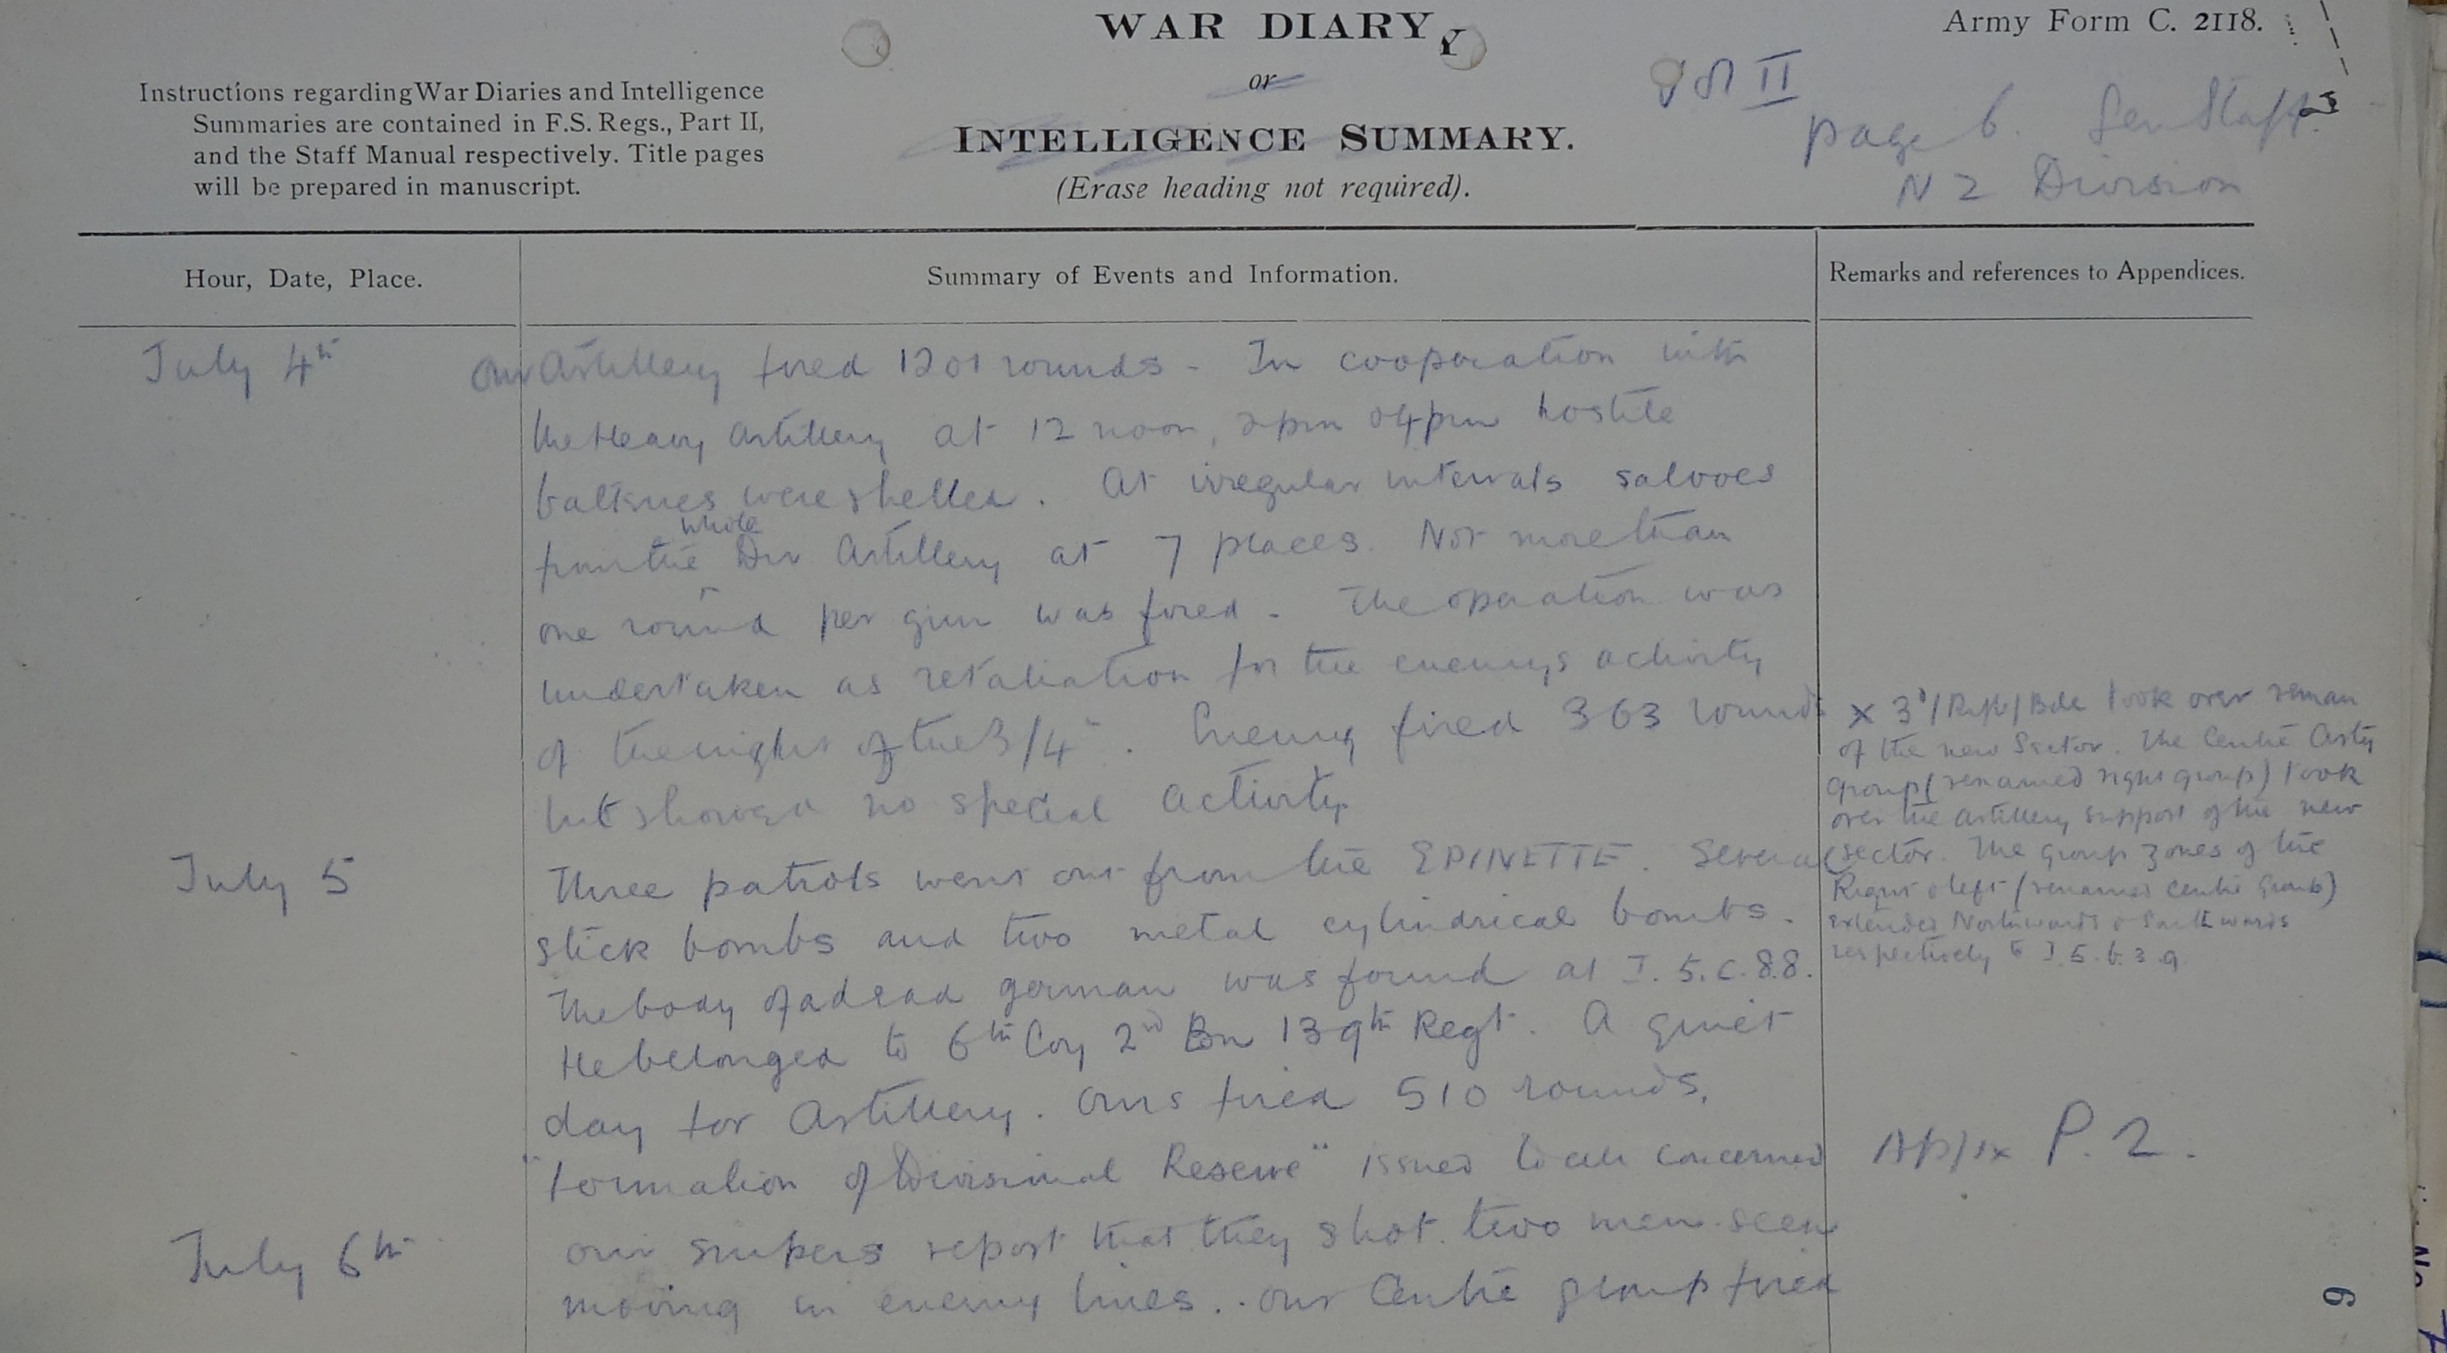 WAR DIARY
Army Form C. 2118.
or
Instructions regarding War Diaries and Intelligence
Summaries are contained in F.S. Regs., Part II,
and the Staff Manual respectively. Title pages
will be prepared in manuscript.
INTELLIGENCE SUMMARY.
(Erase heading not required).
II
page 6. Gen Staff.
N Z Division
Hour, Date, Place.
Summary of Events and Information.
Remarks and references to Appendices.
July 4th
Our Artillery fired 1201 rounds - In cooperation with
the Heavy Artillery at 12 noon, 2pm & 4pm hostile
batteries were shelled. At irregular intervals salvoes
from the whole Div Artillery at 7 places. Not more than
one round per gun was fired - The operation was
undertaken as retaliation for the enemys activity
of the night of the 3/4th. Enemy fired 363 rounds
but showed no special activity
July 5
Three patrols went out from the EPINETTE. Several
stick bombs and two metal cylindrical bombs.
The body of a dead german was found at I.5.c.8.8.
He belonged to 6th Coy 2nd Bn 139th Regt. A quiet
day for Artillery. Ours fired 510 rounds.
"Formation of Divisional Reserve" issued to all concerned
July 6th
Our snipers report that they shot two men seen
moving in enemy lines.. Our Centre group fired
x 3d/Rifle/Bde took over
of the new Sector. The Centre Arty
group (renamed right group) took
over the artillery support of the new
sector. The group zones of the
Right & left (renamed Centre Group)
extended Northwards & Southwards
respectively to I.5.b.3.9.
Appx P.2.
6